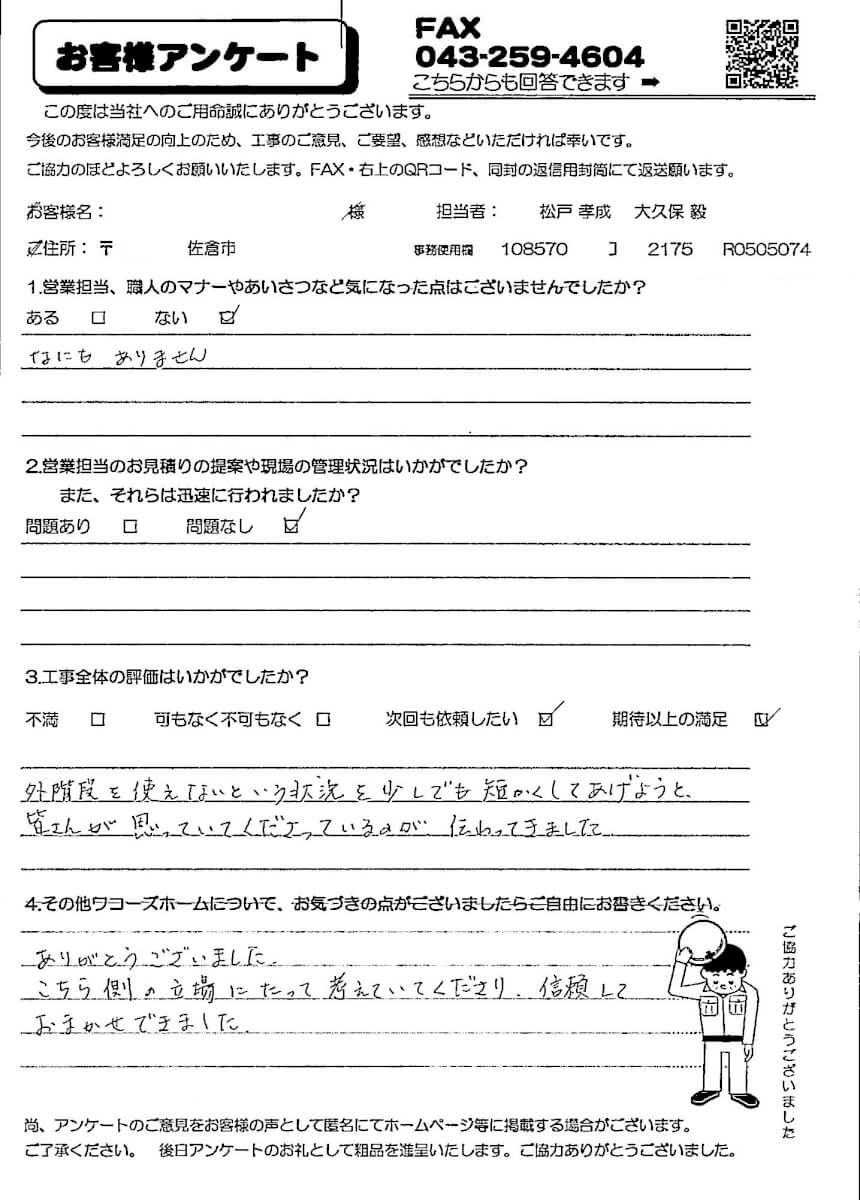 お客様アンケート
FAX
043-259-4604
こちらからも回答できます ➡
この度は当社へのご用命誠にありがとうございます。
今後のお客様満足の向上のため、工事のご意見、ご要望、感想などいただければ幸いです。
ご協力のほどよろしくお願いいたします。FAX・右上のQRコード、同封の返信用封筒にて返送願います。
お客様名： 様 担当者： 松戸 孝成 大久保 毅
ご住所：〒 佐倉市 事務使用欄 108570 J 2175 R0505074
1.営業担当、職人のマナーやあいさつなど気になった点はございませんでしたか？
ある □ ない ☑
なにも ありません
2.営業担当のお見積りの提案や現場の管理状況はいかがでしたか？
また、それらは迅速に行われましたか？
問題あり □ 問題なし ☑
3.工事全体の評価はいかがでしたか？
不満 □ 可もなく不可もなく □ 次回も依頼したい ☑ 期待以上の満足 ☑
外階段を使えないという状況を少しでも短かくしてあげようと、
皆さんが思っていてくださっているのが、伝わってきました
4.その他ワコーズホームについて、お気づきの点がございましたらご自由にお書きください。
ありがとうございました。
こちら側の立場にたって考えていてくださり、信頼して
おまかせできました。
ご協力ありがとうございました
尚、アンケートのご意見をお客様の声として匿名にてホームページ等に掲載する場合がございます。
ご了承ください。 後日アンケートのお礼として粗品を進呈いたします。ご協力ありがとうございました。